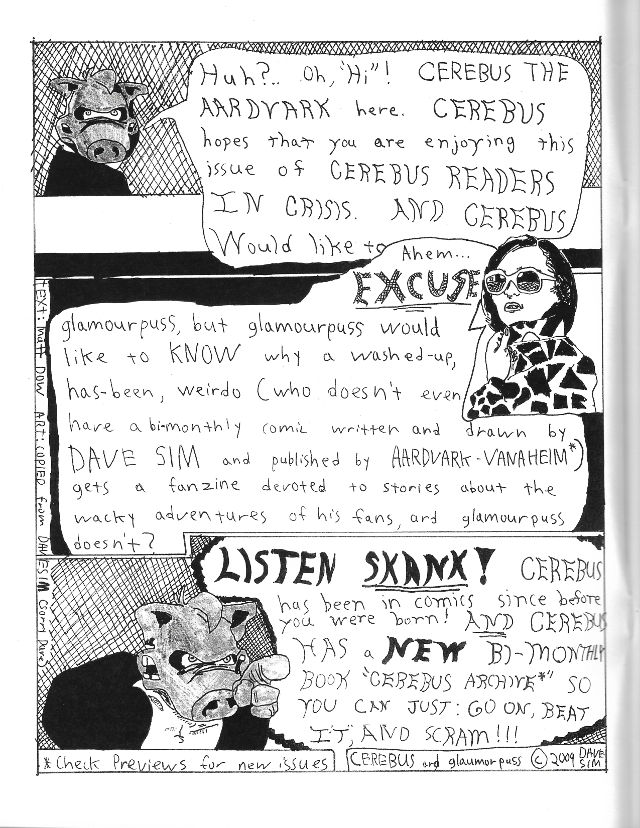 Huh?.. Oh, "Hi"! CEREBUS THE
AARDVARK here. CEREBUS
hopes that you are enjoying this
issue of CEREBUS READERS
IN CRISIS. AND CEREBUS
Would like to
Ahem...
EXCUSE
glamourpuss, but glamourpuss would
like to KNOW why a washed-up,
has-been, weirdo (who doesn't even
have a bi-monthly comic written and drawn by
DAVE SIM and published by AARDVARK-VANAHEIM*)
gets a fanzine devoted to stories about the
wacky adventures of his fans, and glamourpuss
doesn't?
TEXT: Matt DOW ART: COPIED from DAVE SIM (Sorry Dave)
LISTEN SKANK! CEREBUS
has been in comics since before
you were born! AND CEREBUS
HAS a NEW BI-MONTHLY
BOOK "CEREBUS ARCHIVE*" SO
YOU CAN JUST: GO ON, BEAT
IT, AND SCRAM!!!
* Check Previews for new issues
CEREBUS and glaumorpuss © 2009 DAVE SIM